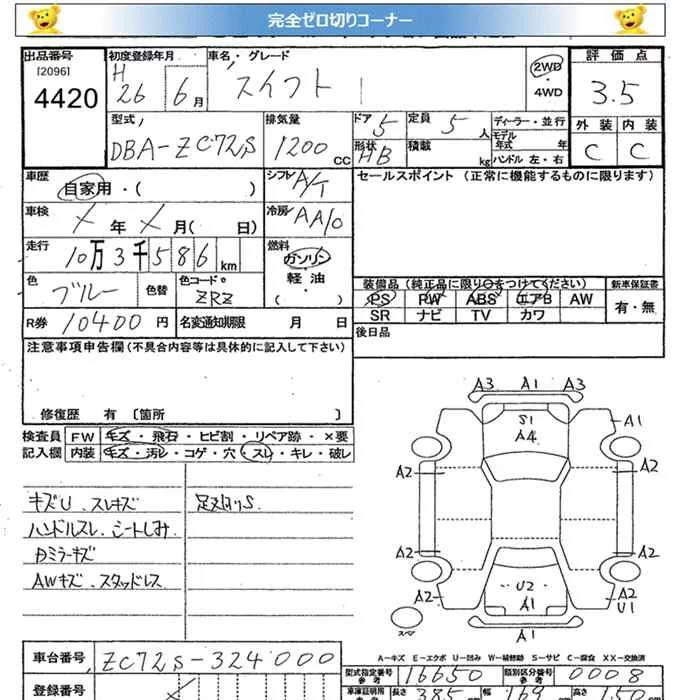 完全ゼロ切りコーナー
出品番号 初度登録年月 車名・グレード 評価点
[2096] H
4420 26 6月 スイフト 2WD・4WD 3.5
型式 排気量 ドア 5 定員 5人 ディーラー・並行 外装 内装
DBA-ZC72S 1200cc 形状 HB 積載 kg モデル年式 年 ハンドル 左・右 C C
車歴 シフト A/T セールスポイント (正常に機能するものに限ります)
自家用・( )
車検 冷房 AAC
× 年 × 月( 日)
走行 燃料
10万3千586km ガソリン
色 色替 色コード 軽油 装備品 (純正品に限り○をつけてください) 新車保証書
ブルー ZRZ ( ) PS PW ABS エアB AW 有・無
SR ナビ TV カワ
R券 10400円 名変通知期限 月 日 後日品
注意事項申告欄 (不具合内容等は具体的に記入して下さい)
修復歴 有 〔箇所 〕
検査員 FW キズ・飛石・ヒビ割・リペア跡・×要
記入欄 内装 キズ・汚レ・コゲ・穴・スレ・キレ・破レ
キズU . スレキズ 足廻りS.
ハンドルスレ . シートしみ.
Dミラーキズ
AWキズ . スタッドレス
A3 A1 A3
S1
A4 A1
A2 A2
A2 A2
U2
A2 A1 A2
U1
スペア
A-キズ E-エクボ U-凹み W-補修跡 S-サビ C-腐食 XX-交換済
車台番号 ZC72S-324000 型式指定番号 参考 16650 類別区分番号 参考 0008
登録番号 車庫証明用 参考 長さ 385 幅 169 高さ 150